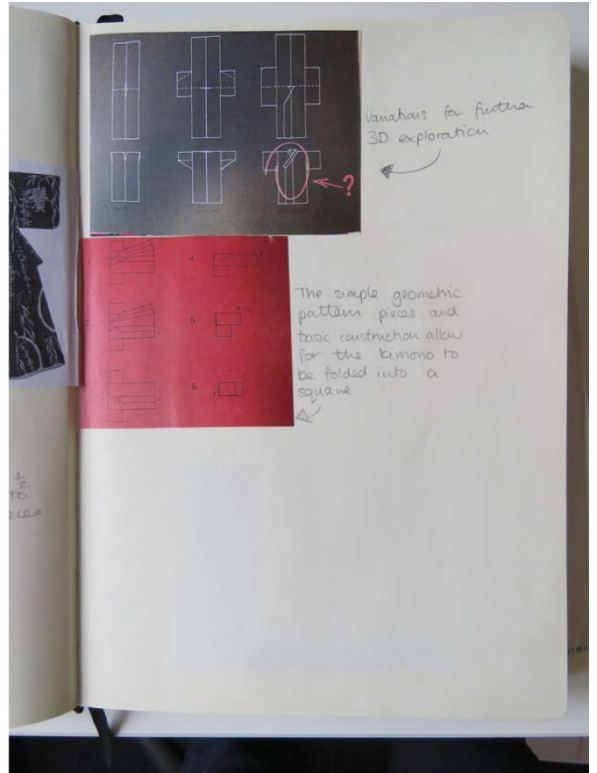 Variations for further
3D exploration
?
4
5
6
The simple geometric
pattern pieces and
basic construction allow
for the kimono to
be folded into a
square